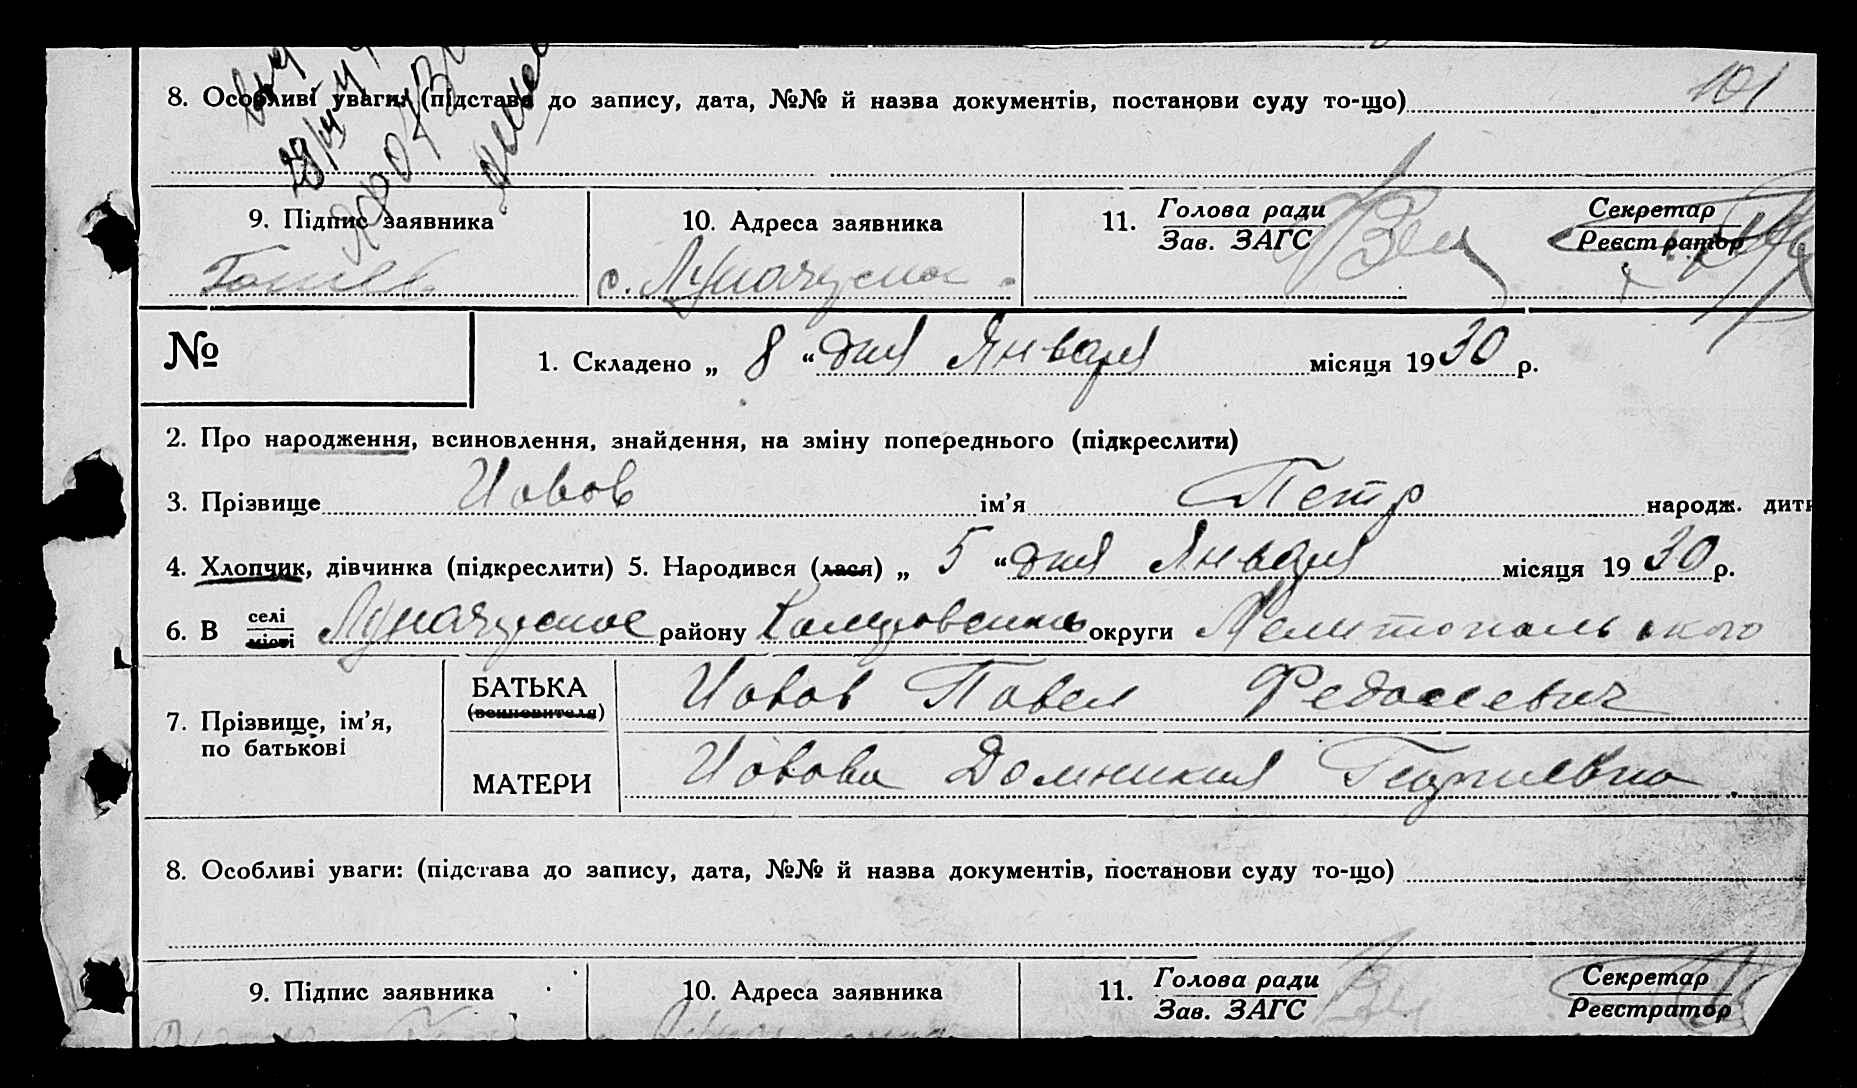 101
8. Особливі уваги: (підстава до запису, дата, №№ й назва документів, постанови суду то-що)
9. Підпис заявника 10. Адреса заявника 11. Голова ради Секретар
Зав. ЗАГС Реєстратор
с.
№ 1. Складено „ 8 “ дня Января місяця 1930 р.
2. Про народження, всиновлення, знайдення, на зміну попереднього (підкреслити)
3. Прізвище Иовов ім’я Петр народж. дити
4. Хлопчик, дівчинка (підкреслити) 5. Народився (лася) „ 5 “ дня Января місяця 1930 р.
6. В селі Луначарское району округи Мелитопольского
місті
БАТЬКА Иовов Павел Федосеевич
(всиновителя)
7. Прізвище, ім’я,
по батькові
МАТЕРИ Иовова Домникия Георгиевна
8. Особливі уваги: (підстава до запису, дата, №№ й назва документів, постанови суду то-що)
9. Підпис заявника 10. Адреса заявника 11. Голова ради Секретар
Зав. ЗАГС Реєстратор